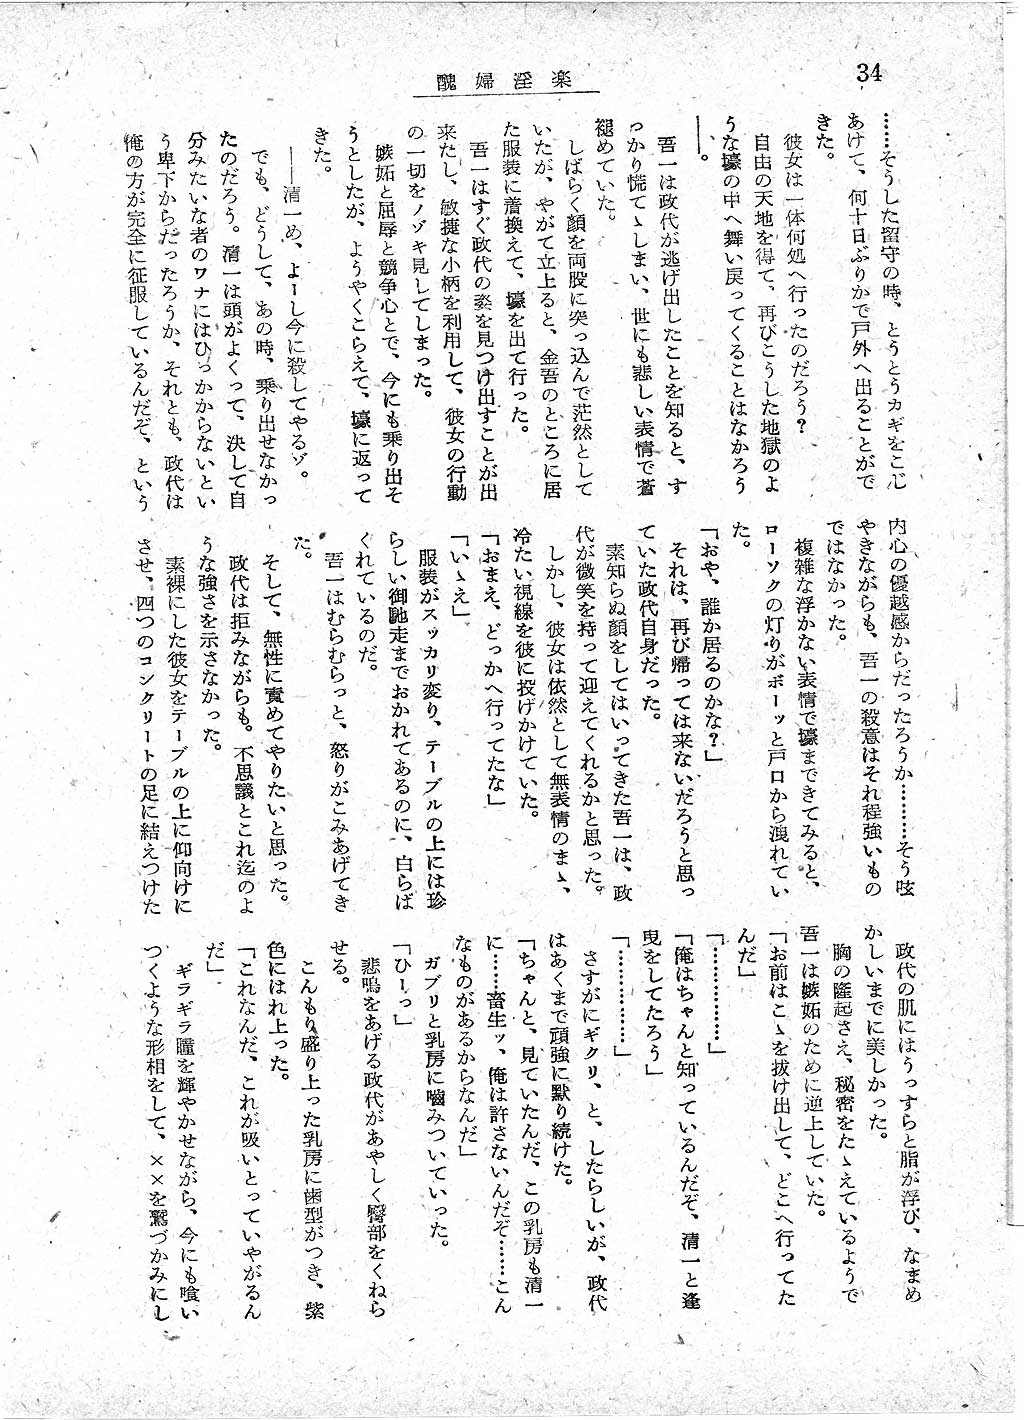 34
醜婦淫楽
……そうした留守の時、とうとうカギをこじ
あけて、何十日ぶりかで戸外へ出ることがで
きた。
彼女は一体何処へ行ったのだろう？
自由の天地を得て、再びこうした地獄のよ
うな壕の中へ舞い戻ってくることはなかろう
――。
吾一は政代が逃げ出したことを知ると、す
っかり慌てゝしまい、世にも悲しい表情で蒼
褪めていた。
しばらく顔を両股に突っ込んで茫然として
いたが、やがて立上ると、金吾のところに居
た服装に着換えて、壕を出て行った。
吾一はすぐ政代の姿を見つけ出すことが出
来たし、敏捷な小柄を利用して、彼女の行動
の一切をノゾキ見してしまった。
嫉妬と屈辱と競争心とで、今にも乗り出そ
うとしたが、ようやくこらえて、壕に返って
きた。
――清一め、よーし今に殺してやるゾ。
でも、どうして、あの時、乗り出せなかっ
たのだろう。清一は頭がよくって、決して自
分みたいな者のワナにはひっかからないとい
う卑下からだったろうか、それとも、政代は
俺の方が完全に征服しているんだぞ、という
内心の優越感からだったろうか………そう呟
やきながらも、吾一の殺意はそれ程強いもの
ではなかった。
複雑な浮かない表情で壕まできてみると、
ローソクの灯りがボーッと戸口から洩れてい
た。
「おや、誰か居るのかな？」
それは、再び帰っては来ないだろうと思っ
ていた政代自身だった。
素知らぬ顔をしてはいってきた吾一は、政
代が微笑を持って迎えてくれるかと思った。
しかし、彼女は依然として無表情のまゝ、
冷たい視線を彼に投げかけていた。
「おまえ、どっかへ行ってたな」
「いゝえ」
服装がスッカリ変り、テーブルの上には珍
らしい御馳走までおかれてあるのに、白らば
くれているのだ。
吾一はむらむらっと、怒りがこみあげてき
た。
そして、無性に責めてやりたいと思った。
政代は拒みながらも。不思議とこれ迄のよ
うな強さを示さなかった。
素裸にした彼女をテーブルの上に仰向けに
させ、四つのコンクリートの足に結えつけた
政代の肌にはうっすらと脂が浮び、なまめ
かしいまでに美しかった。
胸の隆起さえ、秘密をたゝえているようで
吾一は嫉妬のために逆上していた。
「お前はこゝを抜け出して、どこへ行ってた
んだ」
「……………」
「俺はちゃんと知っているんだぞ、清一と逢
曳をしてたろう」
「……………」
さすがにギクリ、と、したらしいが、政代
はあくまで頑強に黙り続けた。
「ちゃんと、見ていたんだ、この乳房も清一
に……畜生ッ、俺は許さないんだぞ……こん
なものがあるからなんだ」
ガブリと乳房に噛みついていった。
「ひーっ」
悲鳴をあげる政代があやしく臀部をくねら
せる。
こんもり盛り上った乳房に歯型がつき、紫
色にはれ上った。
「これなんだ、これが吸いとっていやがるん
だ」
ギラギラ瞳を輝やかせながら、今にも喰い
つくような形相をして、××を鷲づかみにし